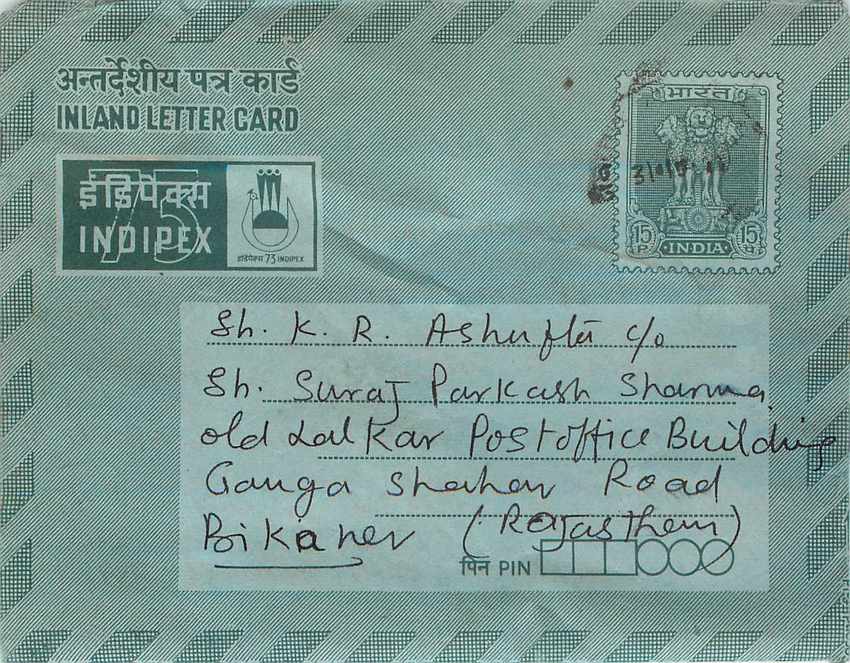 अन्तर्देशीय पत्र कार्ड
INLAND LETTER CARD
इंडिपेक्स
75
INDIPEX
इंडिपेक्स 73 INDIPEX
भारत
15 P.
INDIA
15 पै.
Sh. K. R. Ashufta c/o
Sh. Suraj Parkash Sharma
old Lalkar Postoffice Building
Ganga Shahar Road
Bikaner (Rajasthan)
पिन PIN